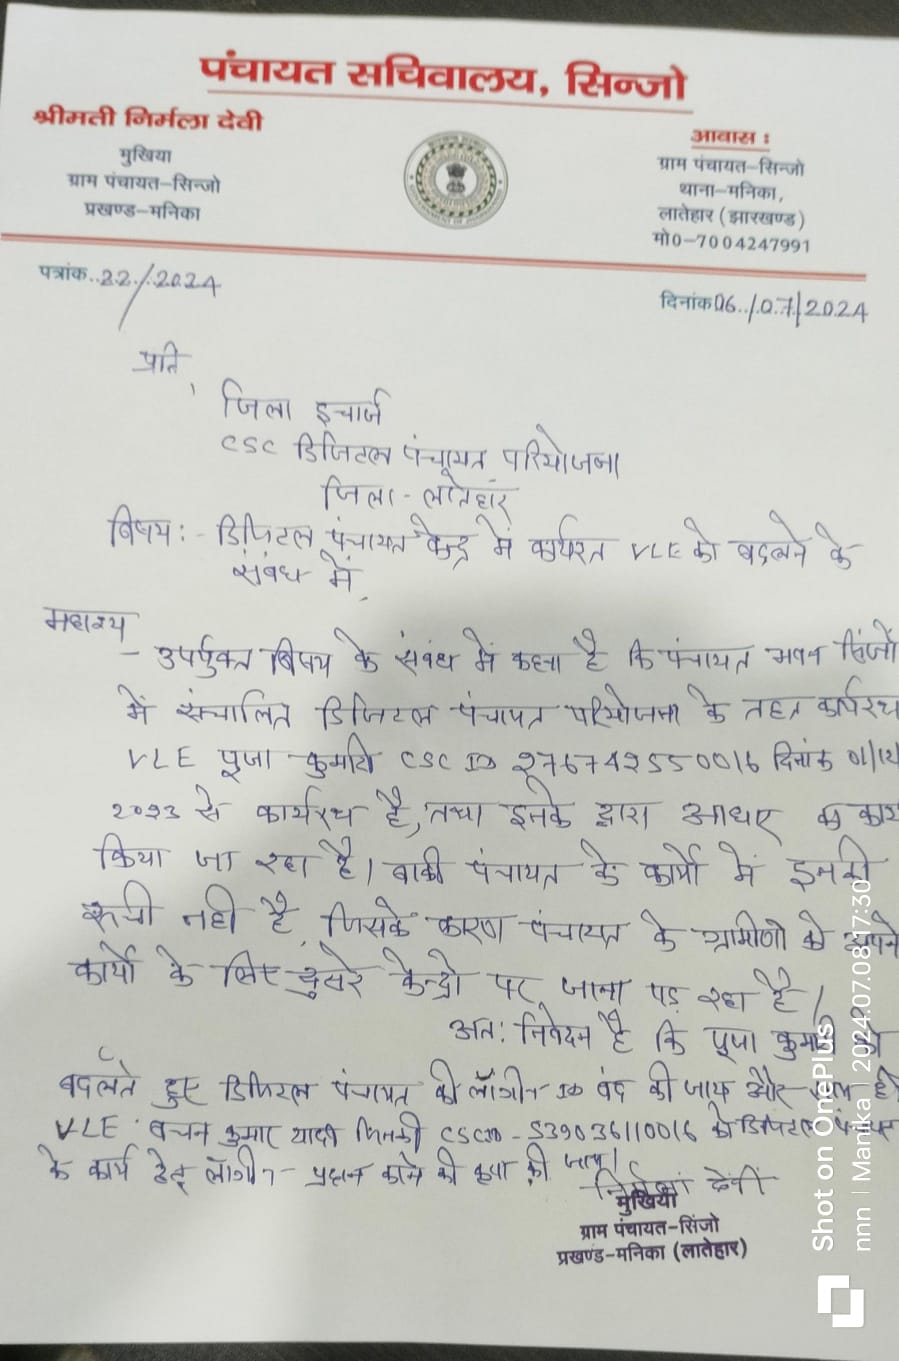 पंचायत सचिवालय, सिन्जो
श्रीमती निर्मला देवी
मुखिया
ग्राम पंचायत-सिन्जो
प्रखण्ड-मनिका
आवास :
ग्राम पंचायत-सिन्जो
थाना-मनिका,
लातेहार (झारखण्ड)
मो0-7004247991
पत्रांक..22./.2024
दिनांक 06../.07/2024
प्रति,
जिला इचार्ज
CSC डिजिटल पंचायत परियोजना
जिला - लातेहार
बिषय:- डिजिटल पंचायत केन्द्र में कार्यरत VLE को बदलने के
संबंध में
महाश्य
- उपर्युक्त बिषय के संबंध में कहना है कि पंचायत भवन सिंजो
में संचालित डिजिटल पंचायत परियोजना के तहत कार्यरथ
VLE पूजा कुमारी CSC ID 276742550016 दिनांक 01/12
2023 से कार्यरथ है, तथा इनके द्वारा आधार का कार्य
किया जा रहा है। बाकी पंचायत के कार्यो में इनकी
रूची नही है, जिसके कारण पंचायत के ग्रामीणो को अपने
कार्यो के लिए दुसरे केन्द्रो पर जाना पड़ रहा है।
अत: निवेदन है कि पूजा कुमारी को
बदलते हुए डिजिटल पंचायत की लॉगीन ID बंद की जाय और
VLE बचन कुमार यादव जिनकी CSC ID - 539036110016 को डिजिटल पंचायत
के कार्य हेतु लॉगीन प्रदान करने की कृपा की जाय।
निर्मला देवी
मुखिया
ग्राम पंचायत-सिंजो
प्रखण्ड-मनिका (लातेहार)
Shot on OnePlus
nnn | Manika | 2024.07.08 17:30